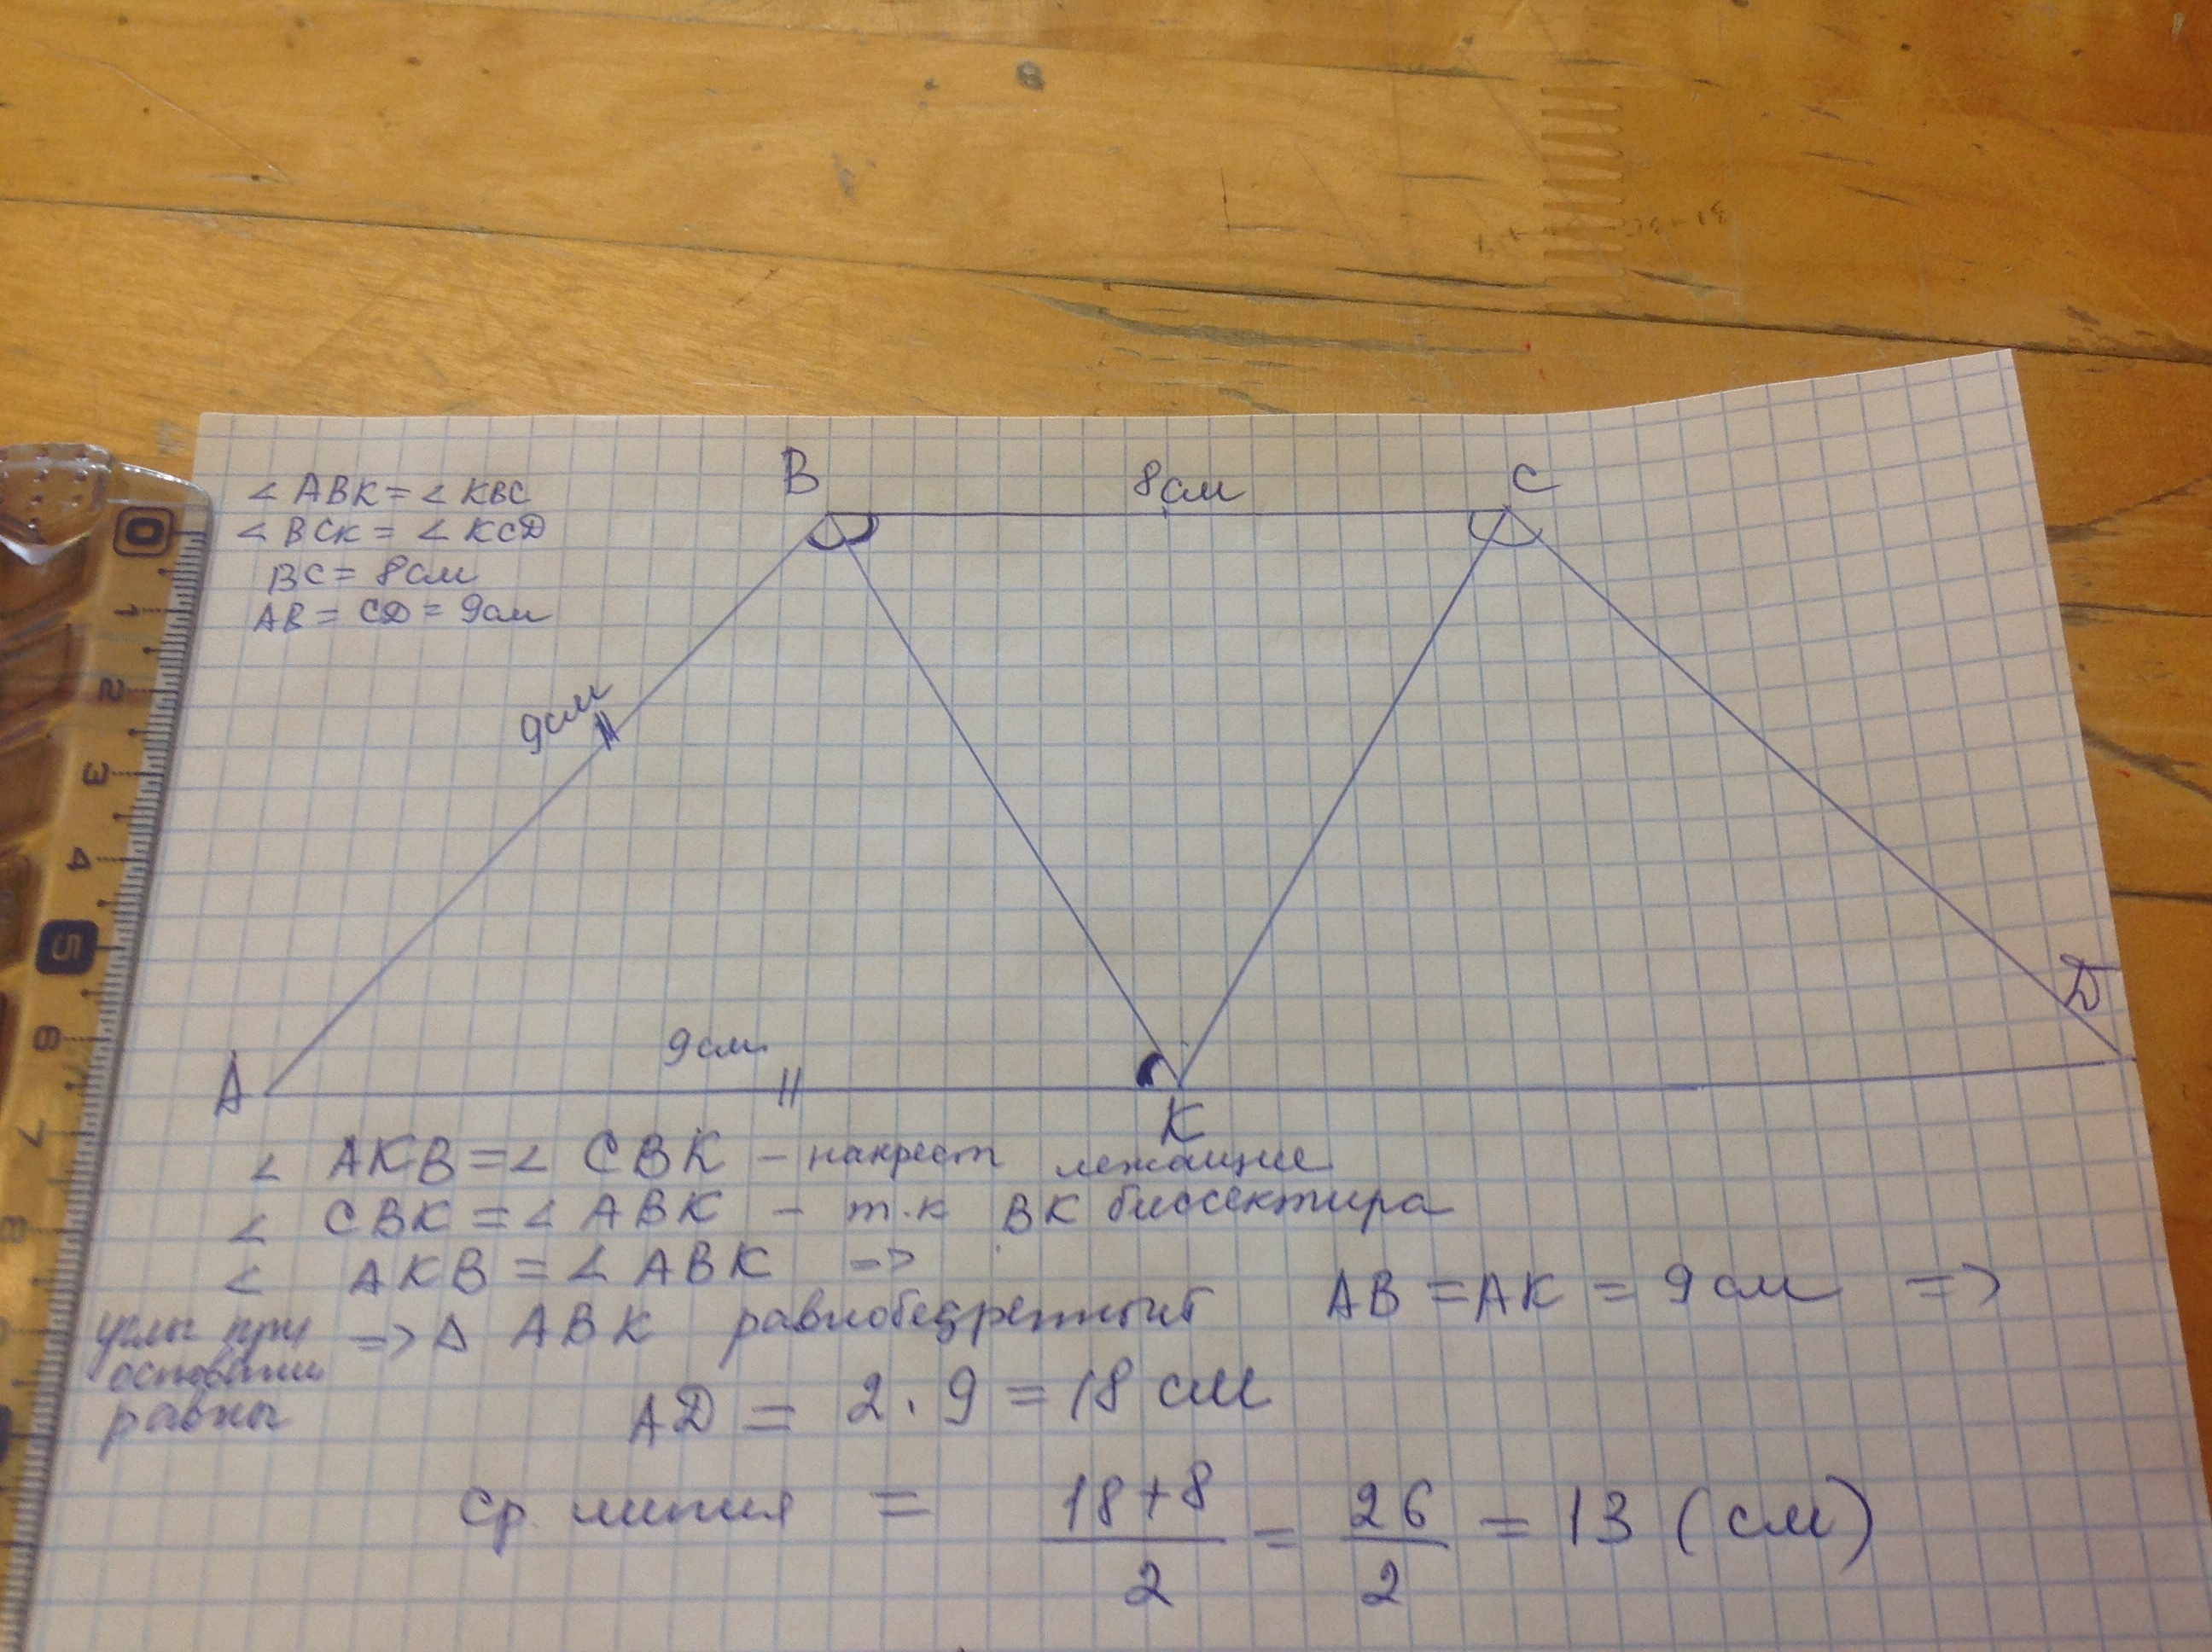 ∠ ABK = ∠ KBC
∠ BCK = ∠ KCD
BC = 8см
AB = CD = 9см
B
8см
C
9см
D
9см
A
K
∠ AKB = ∠ CBK - накрест лежащие
∠ CBK = ∠ ABK - т.к BK биссектриса
∠ AKB = ∠ ABK =>
углы при
равны
=> Δ ABK равнобедренный AB = AK = 9см =>
AD = 2 · 9 = 18 см
ср. линия = 18+8/2 = 26/2 = 13 (см)
0
1
2
3
4
5
6
7
8